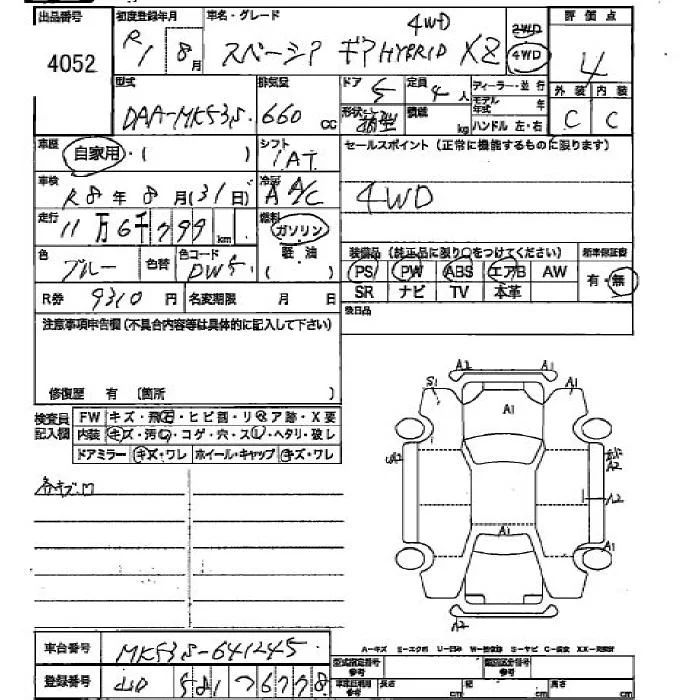 出品番号 初度登録年月 車名・グレード 評価点
4052 R1 8月 スペーシア ギア HYBRID XZ 4WD 2WD 4WD 4
型式 排気量 ドア 定員 ディーラー・並行 外装 内装
DAA-MK53S 660 cc 5 4人 モデル年式 年 C C
形状 箱型 積載 kg ハンドル 左・右
車歴 自家用・( ) シフト IAT セールスポイント(正常に機能するものに限ります)
車検 R8年8月(31日) 冷房 A A/C 4WD
走行 11万6千799km 燃料 ガソリン
軽油 ( ) 装備品(純正品に限り○をつけてください) 新車保証書
色 ブルー 色替 色コード PS PW ABS エアB AW 有・無
R券 9310円 名変期限 月 日 SR ナビ TV 本革
後日品
注意事項申告欄(不具合内容等は具体的に記入して下さい)
修復歴 有 〔箇所 〕
検査員記入欄 FW キズ・飛石・ヒビ割・リペア跡・X要
内装 キズ・汚れ・コゲ・穴・スレ・ヘタリ・破レ
ドアミラー キズ・ワレ ホイール・キャップ キズ・ワレ
A2 A1
S1 A1
A1
A2
A2
A1
A1
A2
A-キズ
車台番号 MK53S-641245
登録番号 581 型式指定番号 参考 類別区分番号 参考
長さ cm 幅 cm 高さ cm